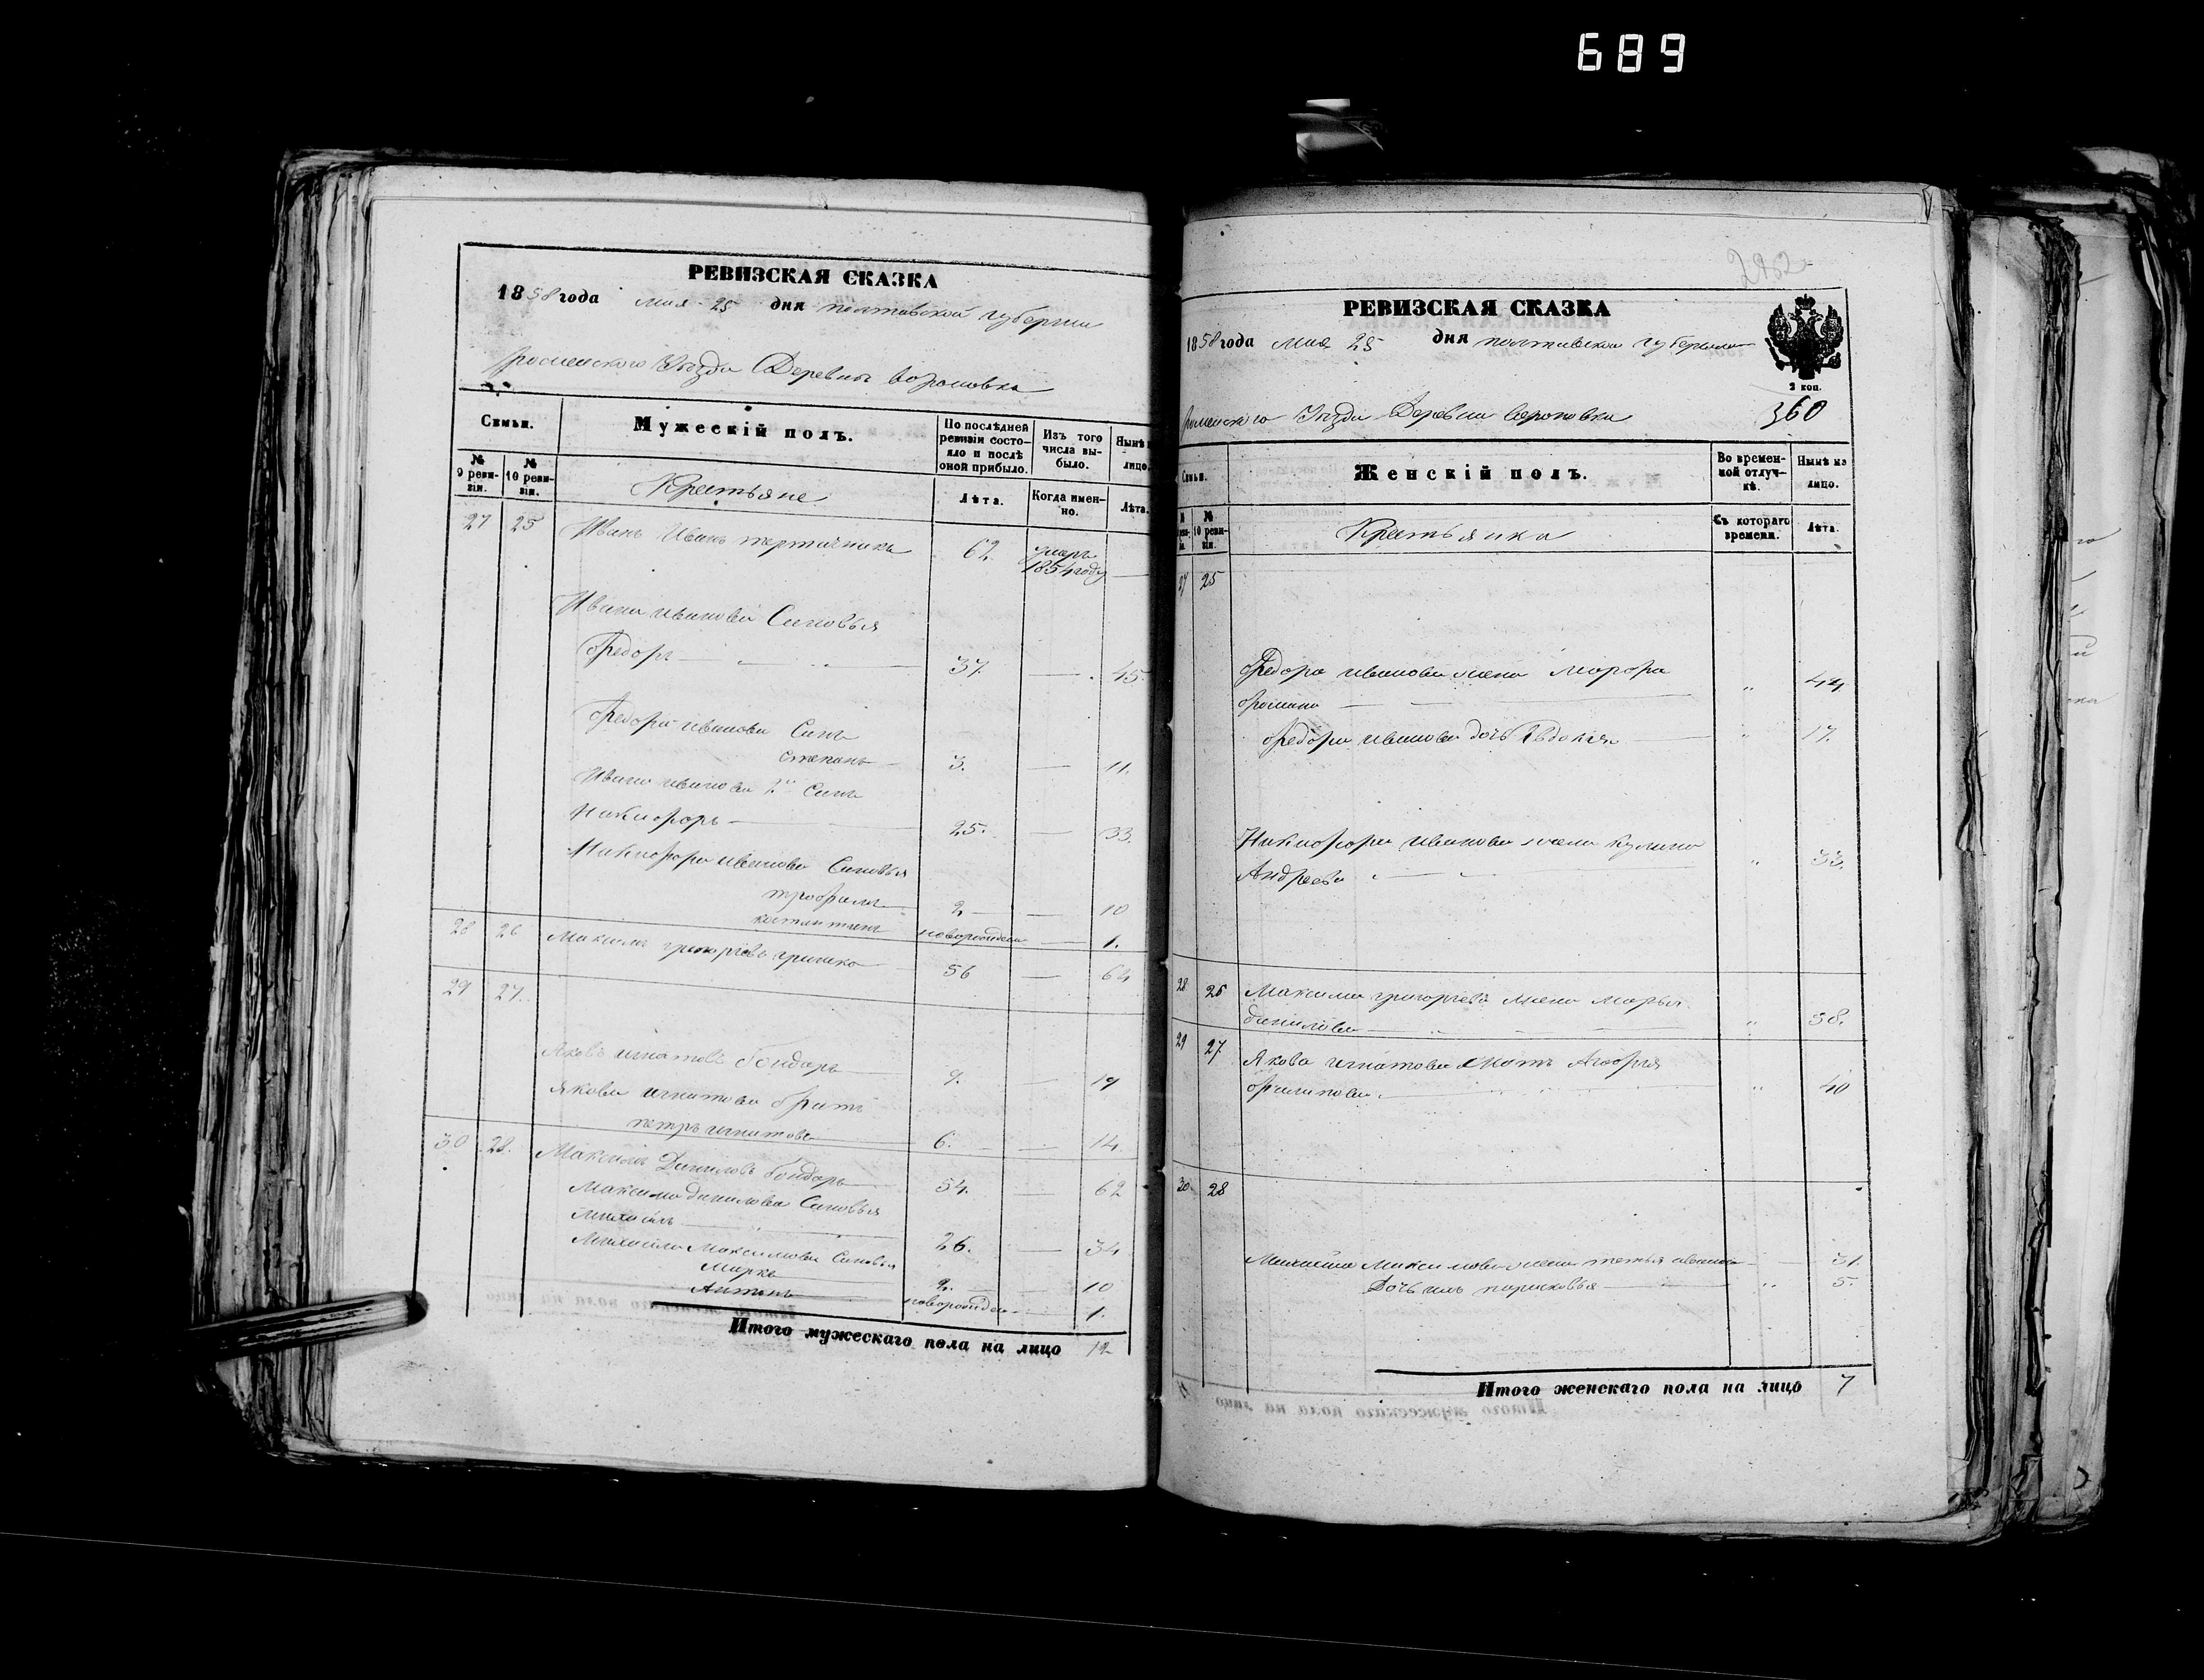 689
РЕВИЗСКАЯ СКАЗКА
1858 года мая 25 дня полтавской губернии
роменского Уѣзда Деревни вороновка
Семьи.
Мужескій полъ.
По послѣдней ревизіи состояло и послѣ оной прибыло.
Изъ того числа выбыло.
Нынѣ
лицо.
№ 9 ревизіи.
№ 10 ревизіи.
Крестьяне
Лѣта.
Когда именно.
Лѣта.
27 25 Иванъ Иванъ 62 умеръ 1854 году
Ивана иванова Синовья
Федоръ 37. 45.
Федора иванова Синъ
степанъ 3. 11.
Ивана иванова 2й Синъ
Никифоръ 25. 33.
Никифора иванова Синовья
трофимъ 2 10
новорожден 1.
28 26 Максимъ григорьевъ гришко 56 64
29 27.
Яковъ игнатовъ бондарь 9. 17
Якова игнатова братъ
петръ игнатовъ 6. 14
30 28. Максимъ Даниловъ бондарь 54. 62
Максима данилова Синовья
михайлъ 26. 34
Михайла Максимова Синовья
Марко 2. 10
Антонъ новорожден 1.
Итого мужескаго пола на лицо 12
2
360
РЕВИЗСКАЯ СКАЗКА
1858 года мая 25 дня полтавской губернии
2 коп.
роменского Уѣзда Деревни вороновки
Семьи.
Женскій полъ.
Во временной отлучкѣ.
Нынѣ на лицо.
№ 10 ревизіи.
Крестьянка
Съ котораго времени.
Лѣта.
27 25
Федора иванова жена
" 44
федора иванова дочь Евдокия " 17.
Никифора иванова жена кулина
Андреева " 33.
28 26 Максима григорьева жена Марья
данилова " 58.
29 27 Якова игнатова мать Агафия
филипова " 40
30 28
Михайла Максимова жена 31
Дочь ихъ парасковья " 5.
Итого женскаго пола на лицо 7